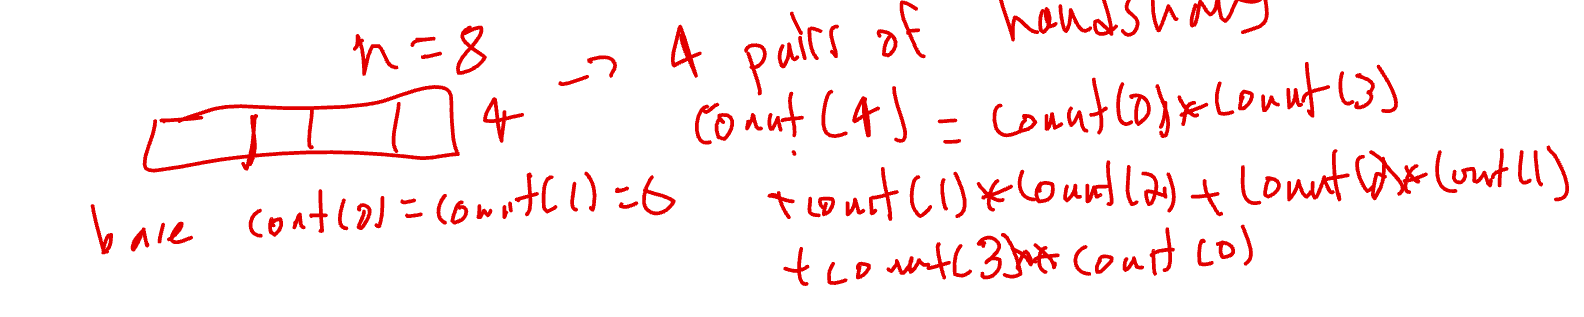 n = 8
4 -> 4 pairs of handshakes
count(4) = count(0)*count(3)
+ count(1)*count(2) + count(2)*count(1)
+ count(3)* count(0)
base cont(0) = count(1) = 6